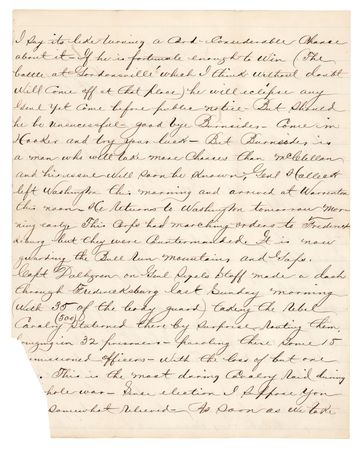 I say its like turning a Card - Considerable Chance
about it - If he is fortunate enough to Win (The
battle at Gordonsville which I think without doubt
will come off at that place) he will eclipse any
Genl yet come before public notice - But Should
he be unsucessful - good bye Burnsides - Come in
Hooker and try your luck - But Burnsides is
a man who will take more Chances than McClellan
and his issue will soon be Known, Genl Halleck
left Washington this morning and arrived at Warrenton
this noon - He returns to Washington tomorrow mor-
ning early This Corps had marching orders to Frederick
sburg but they were Countermanded. It is now
guarding the Bull Run Mountains and Gaps.
Capt Dahlgren on Genl Sigels Staff made a dash
through Fredericksburg last Sunday morning
(with 35 of the body guard) taking the Rebel
Cavalry (300) stationed there by Surprise Routing them,
bringing in 32 prisoners - paroling there some 15
commissioned officers - With the loss of but one
. This is the most daring Cavalry Raid during
whole war - Since election I suppose You
somewhat relieved - As soon as we take